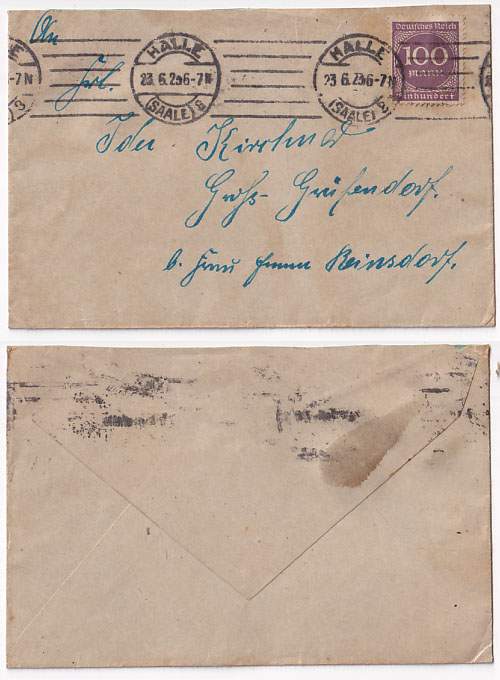 An
HALLE
23.6.23 6-7N
(SAALE) 8
HALLE
23.6.23 6-7N
(SAALE) 8
Deutsches Reich
100
MARK
Einhundert
Frl.
Ida
Groß-Gräfendorf.
b. Frau Emma Reinsdorf.